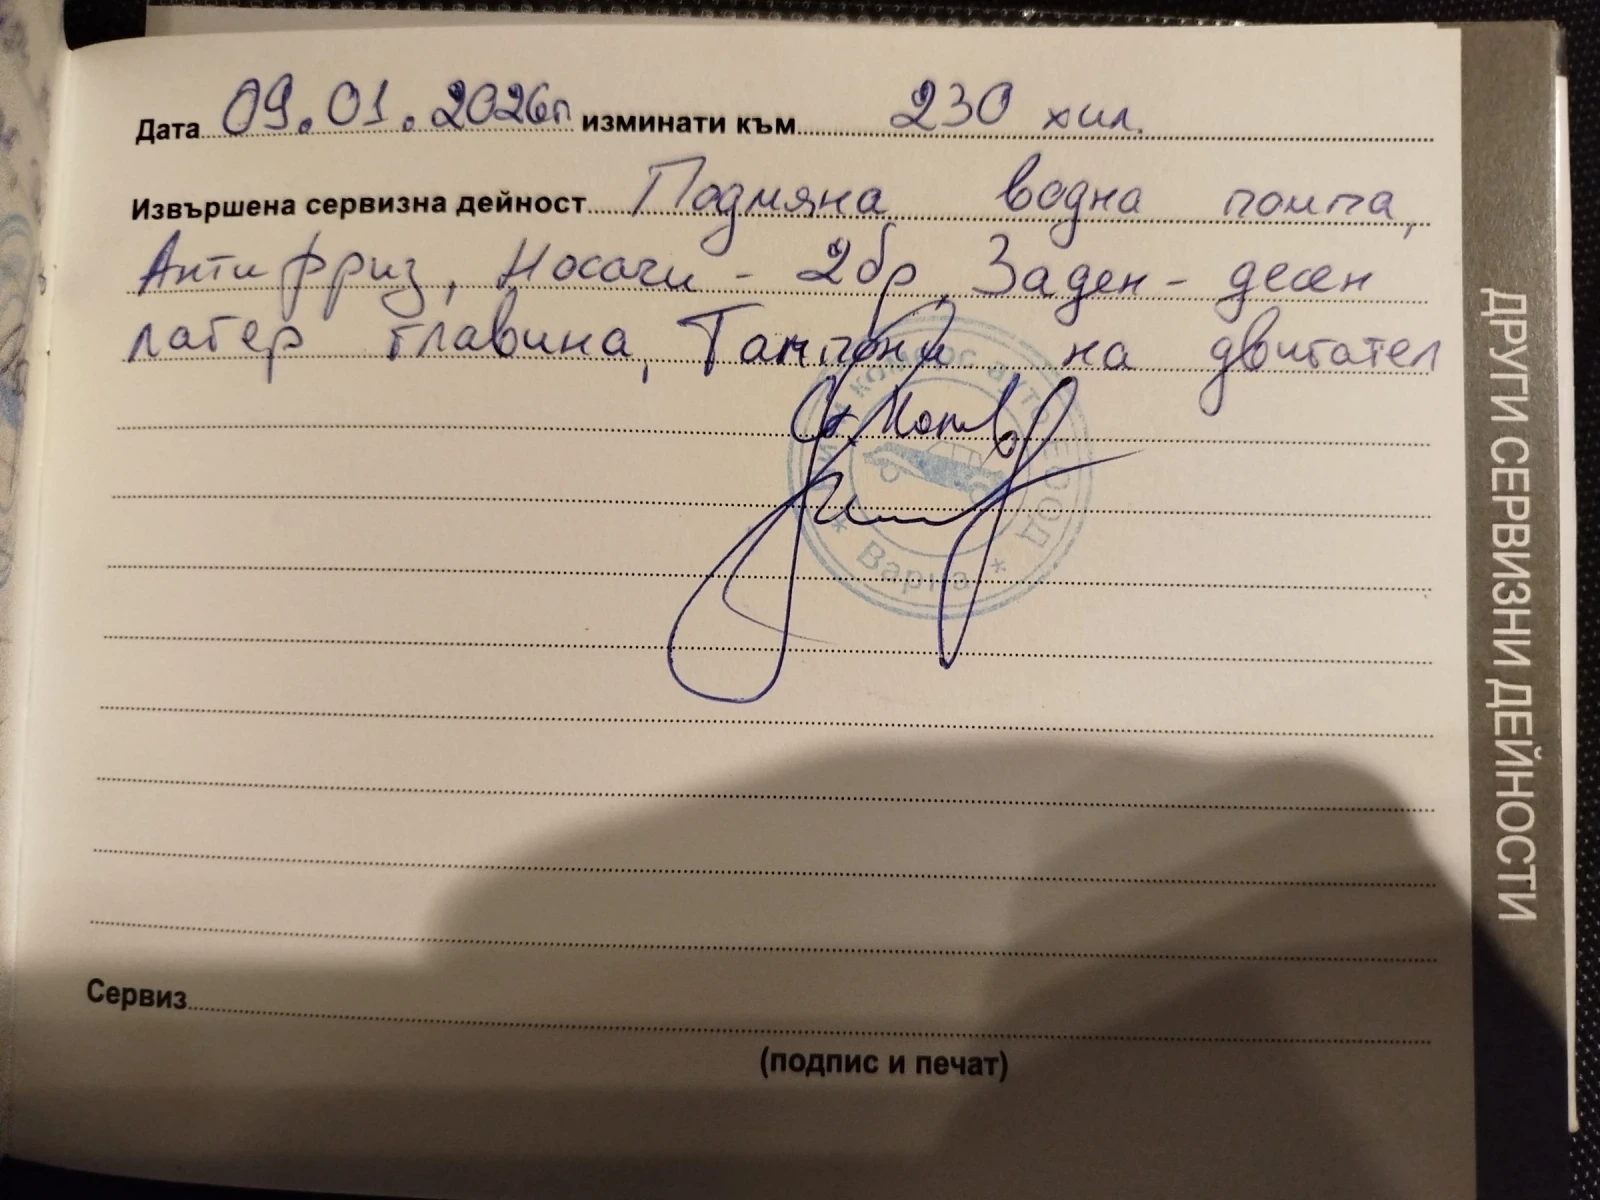 Дата 09.01.2026г изминати към 230 хил.
Извършена сервизна дейност Подмяна водна помпа,
Антифриз, Носачи - 2бр, Заден - десен
лагер главина, Тампони на двигател
комерс авто
Варна
Сервиз
(подпис и печат)
ДРУГИ СЕРВИЗНИ ДЕЙНОСТИ